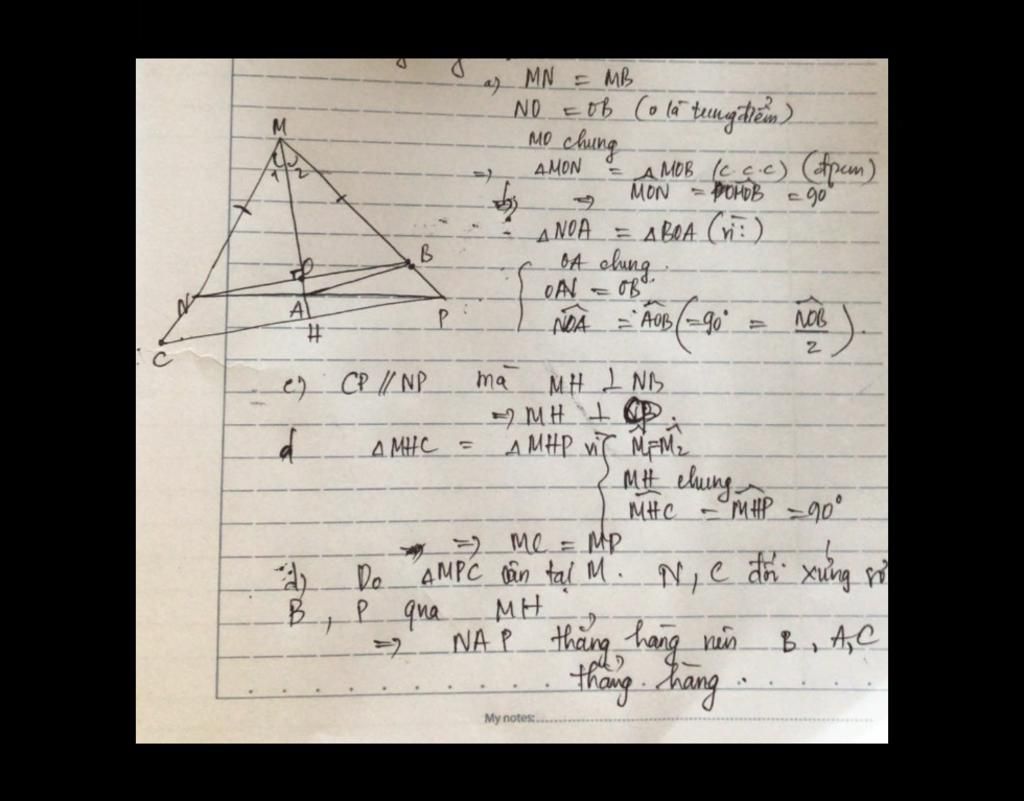 a) MN = MB
NO = OB (O là trung điểm)
MO chung
=> ΔMON = ΔMOB (c.c.c) (đpcm)
b) => MON = MOB = 90
ΔNOA = ΔBOA (vì:)
OA chung
OAN = OB
NOA = AOB (=90° = NOB/2).
c) CP // NP mà MH ⊥ NB
=> MH ⊥
d ΔMHC = ΔMHP vì M₁=M₂
MH chung
MHC = MHP = 90°
=> MC = MP
d) Do ΔMPC cân tại M. N, C đối xứng
B, P qua MH
=> NAP thẳng hàng nên B, A, C
thẳng hàng.
My notes:
M
1 2
B
O
N
A
P
H
C